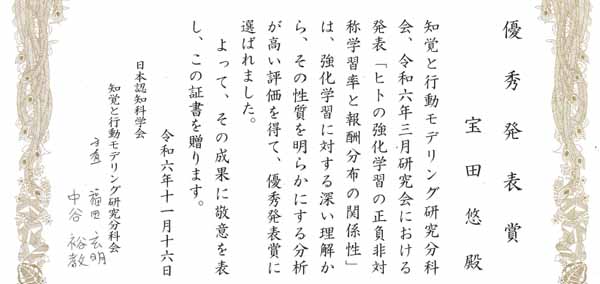 優秀発表賞
宝田悠殿
知覚と行動モデリング研究分科
会、令和六年三月研究会における
発表「ヒトの強化学習の正負非対
称学習率と報酬分布の関係性」
は、強化学習に対する深い理解か
ら、その性質を明らかにする分析
が高い評価を得て、優秀発表賞に
選ばれました。
よって、その成果に敬意を表
し、この証書を贈ります。
令和六年十一月十六日
日本認知科学会
知覚と行動モデリング研究分科会
福田玄明
中谷裕教